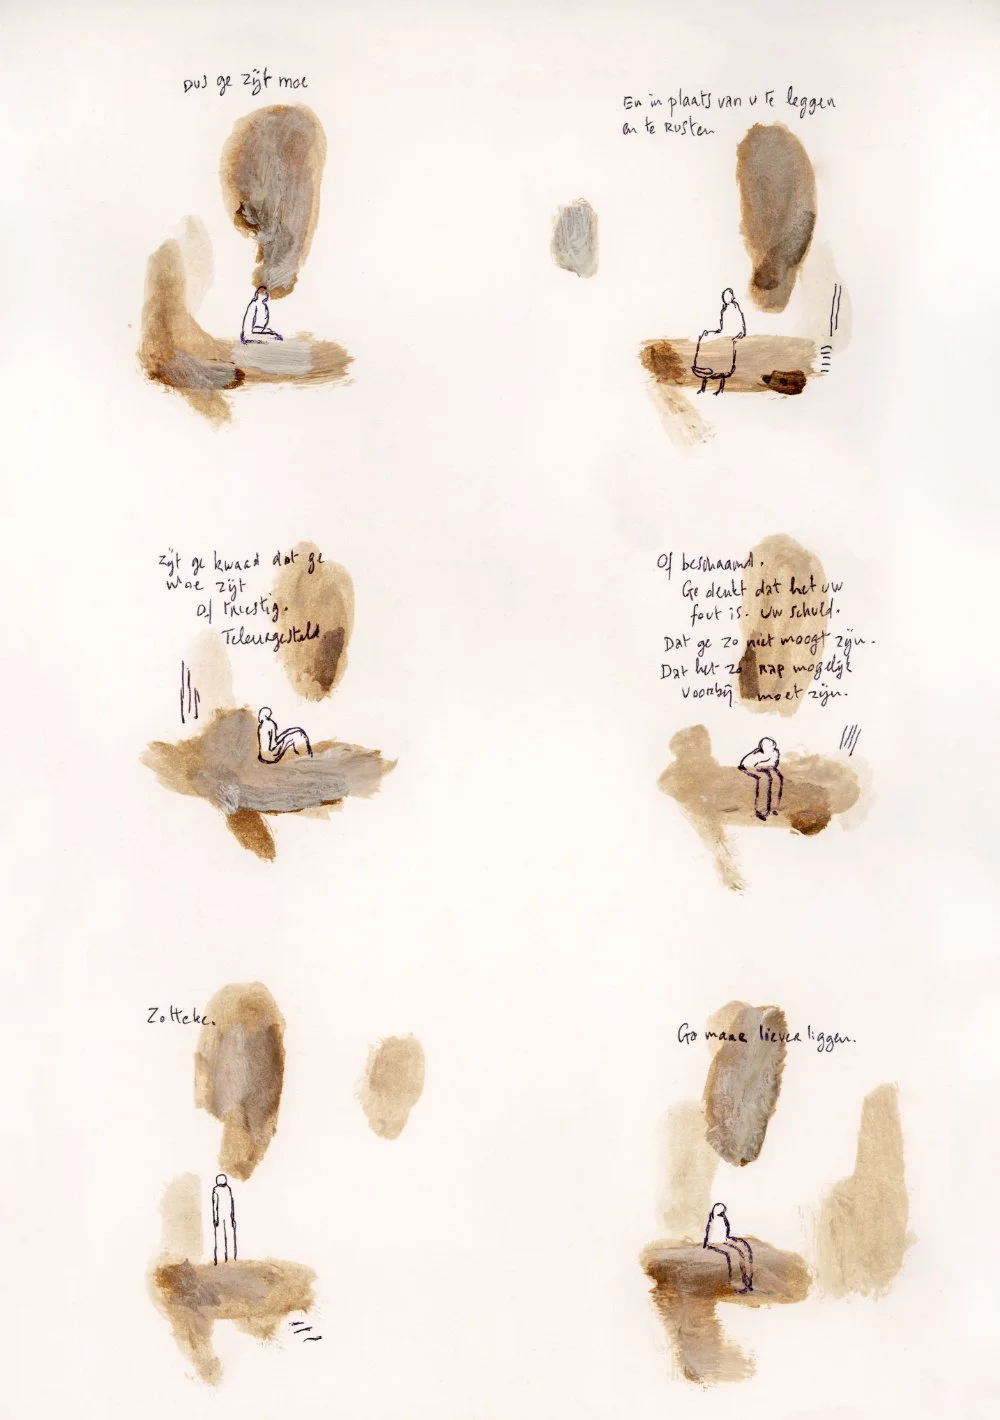 Dus ge zijt moe
En in plaats van u te leggen
en te Rusten
zijt ge kwaad dat ge
moe zijt
Of triestig.
Teleurgesteld
Of beschaamd.
Ge denkt dat het uw
fout is. Uw schuld.
Dat ge zo niet moogt zijn.
Dat het zo RAP mogelijk
voorbij moet zijn.
Zotteke.
Ga maar liever liggen.